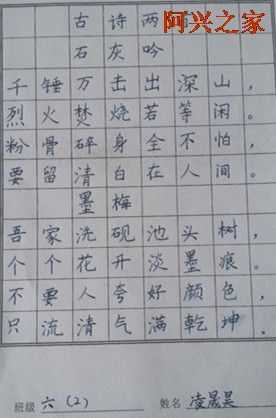 阿兴之家
古诗两首
石灰吟
千锤万击出深山，
烈火焚烧若等闲。
粉骨碎身全不怕，
要留清白在人间。
墨梅
吾家洗砚池头树，
个个花开淡墨痕。
不要人夸好颜色，
只流清气满乾坤。
班级 六（2） 姓名 凌晟昊